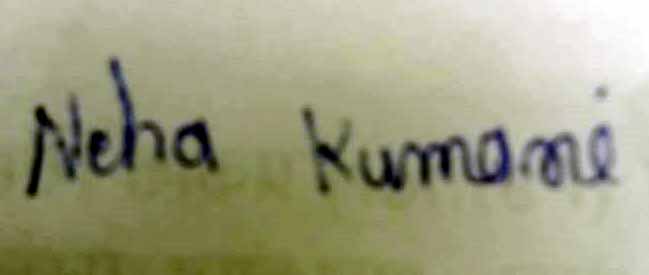 Neha Kumari